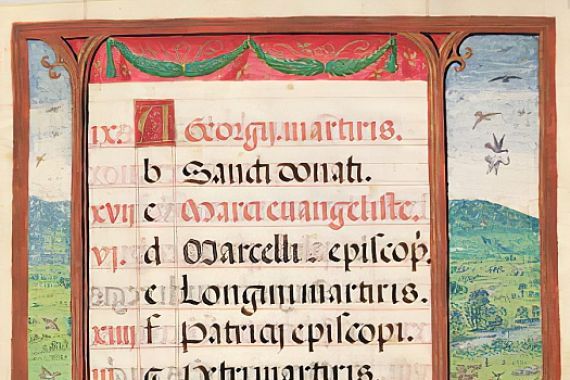 ix. A Georgij.martiris.
b Sancti donati.
xvij c Marci euangeliste.
vj. d Marcelli. episcop̄.
e Longini martiris.
xiiij f Patricij episcopi.
iij g Petri martiris.